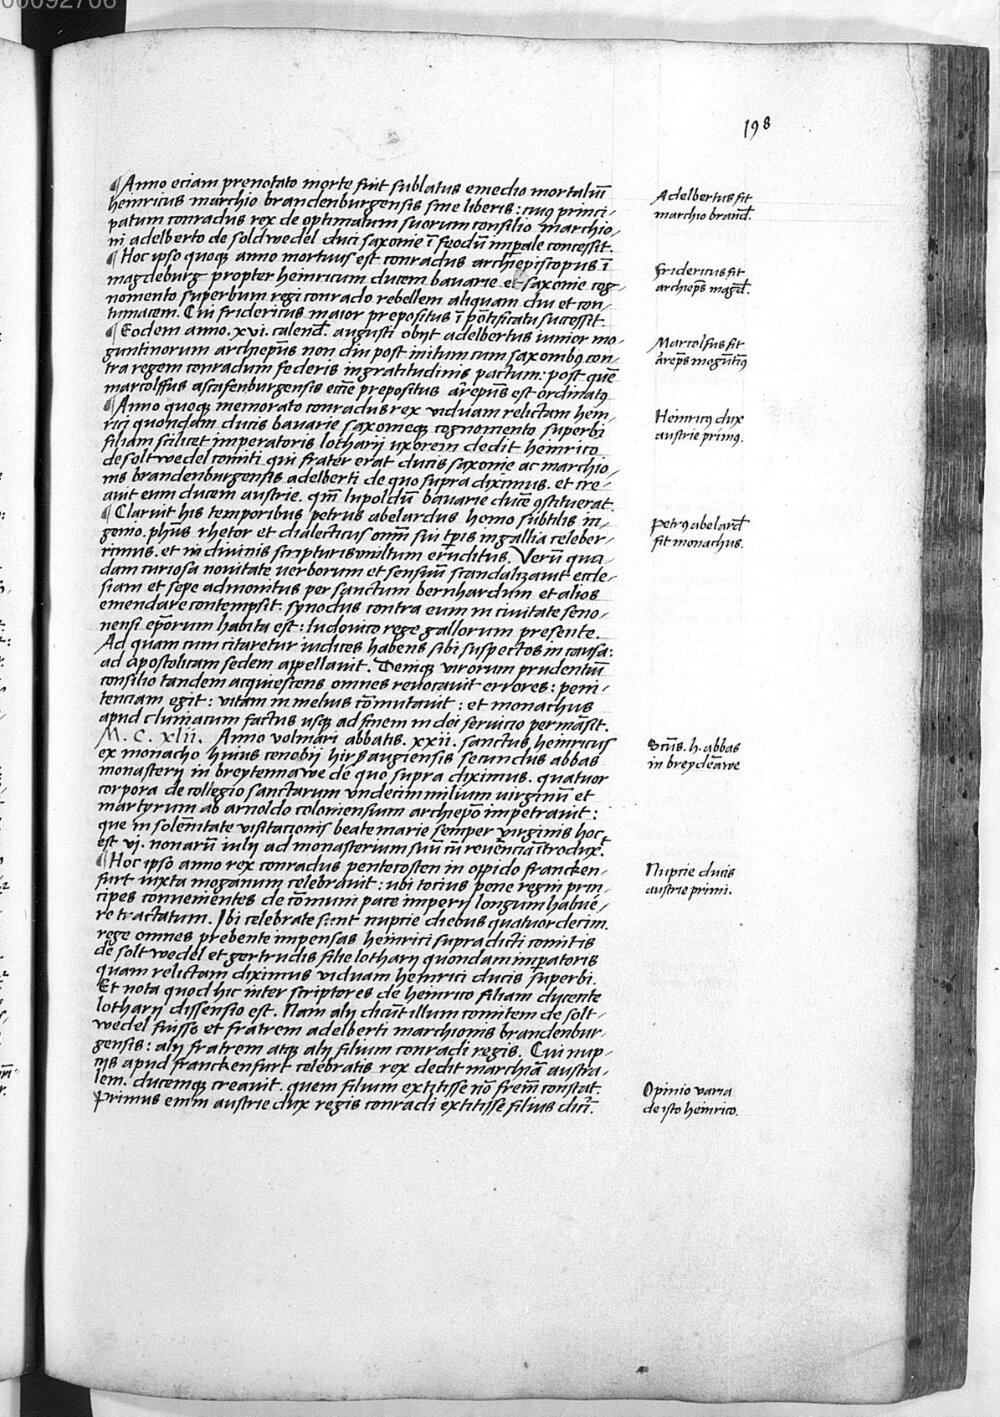 00092706
198
¶ Anno eciam prenotato morte fuit sublatus emedio mortaliũ
heinricus marchio brandenburgensis sine liberis: cuiꝰ princi-
patum conradus rex de optimatum suorum consilio marchio-
ni adelberto de soldwedel duci saxonie ĩ feodũ impiale concessit.
¶ Hoc ipso quoqꝫ anno mortuus est conradus archiepiscopus ĩ
magdeburg propter heinricum ducem bauarie et saxonie cog-
nomento superbum regi conrado rebellem aliquam diu et con-
tumacem. Cui fridericus maior prepositus ĩ põtificatu successit.
¶ Eodem anno .xvi. calend. augusti obijt adelbertus iunior mo-
guntinorum archiepũs non diu post initum cum saxonibꝰ con-
tra regem conradum federis ingratitudinis pactum: post quẽ
marcolffus ascafenburgensis eccẽ prepositus arepũs est ordinatꝰ
¶ Anno quoqꝫ memorato conradus rex viduam relictam hein-
rici quondam ducis bauarie saxonieqꝫ cognomento superbi
filiam scilicet imperatoris lotharij uxorem dedit heinrico
de soltwedel comiti qui frater erat ducis saxonie ac marchio-
nis brandenburgensis adelberti de quo supra diximus. et cre-
auit eum ducem austrie. qm̃ lupoldũ bauarie ducẽ ꝯstituerat.
¶ Claruit his temporibus petrus abelardus homo subtilis in-
genio. phũs rhetor et dialecticus om̃ sui tp̃is in gallia celeber-
rimus. et in diuinis scripturis multum eruditus. Verũ qua-
dam curiosa nouitate verborum et sensuũ scandalizauit eccle-
siam et sepe admonitus per sanctum bernhardum et alios
emendare contempsit: synodus contra eum in ciuitate seno-
nensi ep̃orum habita est: ludouico rege gallorum presente.
Ad quam cum citaretur iudices habens sibi suspectos in causa:
ad apostolicam sedem appellauit. Deniqꝫ virorum prudentiũ
consilio tandem acquiescens omnes reuocauit errores: peni-
tenciam egit: vitam in melius cõmutauit: et monachus
apud cluniacum factus usqꝫ ad finem in dei seruicio permãsit.
M. C. xlii. Anno volmari abbatis .xxii. sanctus heinricus
ex monacho huius cenobij hirsaugiensis secundus abbas
monasterij in breytennawe de quo supra diximus. quatuor
corpora de collegio sanctarum vndecim milium virginũ et
martyrum ab arnoldo coloniensium archiep̃o impetrauit:
que in solẽnitate visitacionis beate marie semper virginis hoc
est vj. nonarũ iulij ad monasterium suũ cũ reuẽncia ĩtroduxᵗ.
¶ Hoc ipso anno rex conradus pentecosten in oppido francken-
furt iuxta moganum celebrauit: ubi tocius pene regni prin-
cipes conuenientes de cõmuni pace imperij longum habue-
re tractatum. Ibi celebrate sunt nupcie diebus quatuordecim.
rege omnes prebente impensas heinrici supradicti comitis
de soltwedel et gertrudis filie lotharij quondam impatoris
quam relictam diximus viduam heinrici ducis superbi.
Et nota quod hic inter scriptores de heinrico filiam ducente
lotharij dissensio est. Nam alij dicũt illum comitem de solt-
wedel fuisse et fratrem adelberti marchionis brandenbur-
gensis: alij fratrem atqꝫ alij filium conradi regis. Cui nup-
cijs apud franckenfurt celebratis rex dedit marchiã austra-
lem. ducemqꝫ creauit. quem filium extitisse nõ frẽm constat.
Primus enim austrie dux regis conradi extitisse filius dicr̃.
Adelbertus fit
marchio brand.
Fridericus fit
archiep̃s magd.
Marcolfus fit
arep̃s mogũtiꝰ
Heinricꝰ dux
austrie primꝰ.
Petrꝰ abelard
fit monachus.
Scũs. h. abbas
in breydẽawe
Nupcie ducis
austrie primi.
Opinio varia
de isto heinrico.